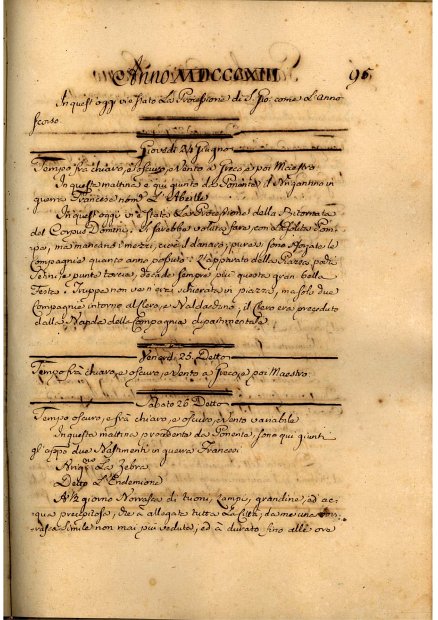 Anno MDCCCXIII 95
In quest'oggi vi è stato la Processione di S. Gio: come l'anno
scorso
Giovedì 24 Giugno
Tempo frà chiaro, e oscuro, e Vento a Greco, e poi Maestro
In questa mattina è qui giunto da Ponente il Brigantino in
guerra Francese nom.º L'Abeille
In quest'oggi vi è stato la Processione della Ottavata
del Corpus Domini; Si sarebbe voluta fare, con la solita Pom-
pa, ma mancano i mezzi, cioè il danaro, pure si sono sfogate le
Compagnie quanto anno possuto: L'apparato della Piazza
e punto torcia, decade sempre più questa gran bella
Festa. Truppa non vi era schierata in piazza, ma solo due
Compagnie intorno al Clero, e Baldacchino, il Clero era preceduto
dalla Banda della Compagnia dipartimentale
Venerdì 25 Detto
Tempo frà chiaro, e oscuro, e Vento a Greco, e poi Maestro
Sabato 26 Detto
Tempo oscuro, e frà chiaro, e oscuro, e Vento variabile
In questa mattina procedente da Ponente, sono qui giunti
gl'appo due Bastimenti in guerra Francesi
Brig.no La Zebra
Detto L'Endemione
A ½ giorno Borrasca di tuoni, Lampi, grandine, ed ac-
qua precipitosa, che à allagata tutta la Città, da me una bor-
rasca simile non mai più veduta, ed à durato fino alle ora